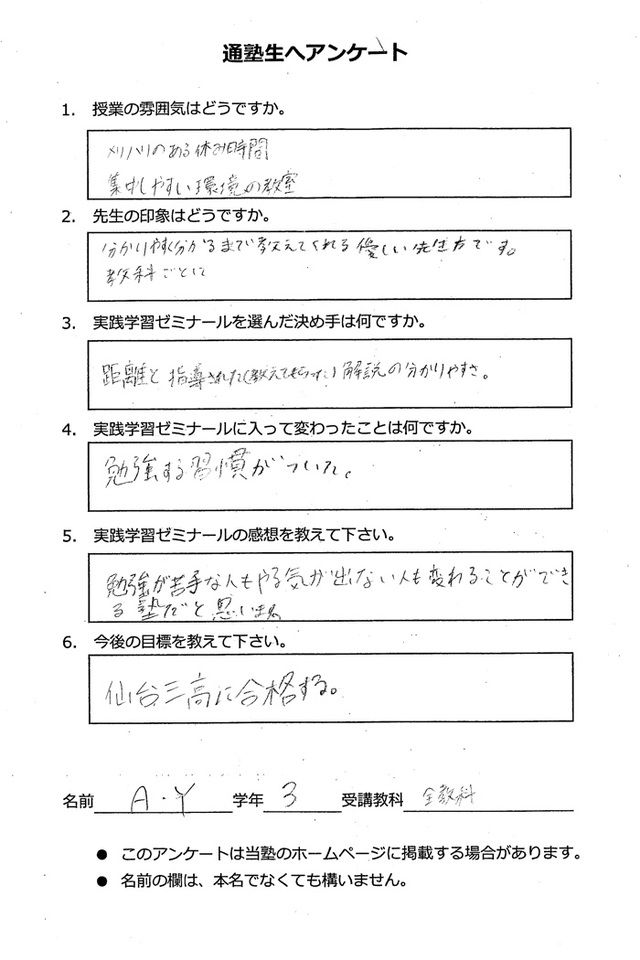 通塾生へアンケート
1. 授業の雰囲気はどうですか。
メリハリのある休み時間
集中しやすい環境の教室
2. 先生の印象はどうですか。
分かりやすく分かるまで教えてくれる優しい先生方です。
教科ごとに
3. 実践学習ゼミナールを選んだ決め手は何ですか。
距離と指導された(教えてもらった)解説の分かりやすさ。
4. 実践学習ゼミナールに入って変わったことは何ですか。
勉強する習慣がついた。
5. 実践学習ゼミナールの感想を教えて下さい。
勉強が苦手な人もやる気が出ない人も変わることができ
る塾だと思います。
6. 今後の目標を教えて下さい。
仙台三高に合格する。
名前 A・Y 学年 3 受講教科 全教科
● このアンケートは当塾のホームページに掲載する場合があります。
● 名前の欄は、本名でなくても構いません。